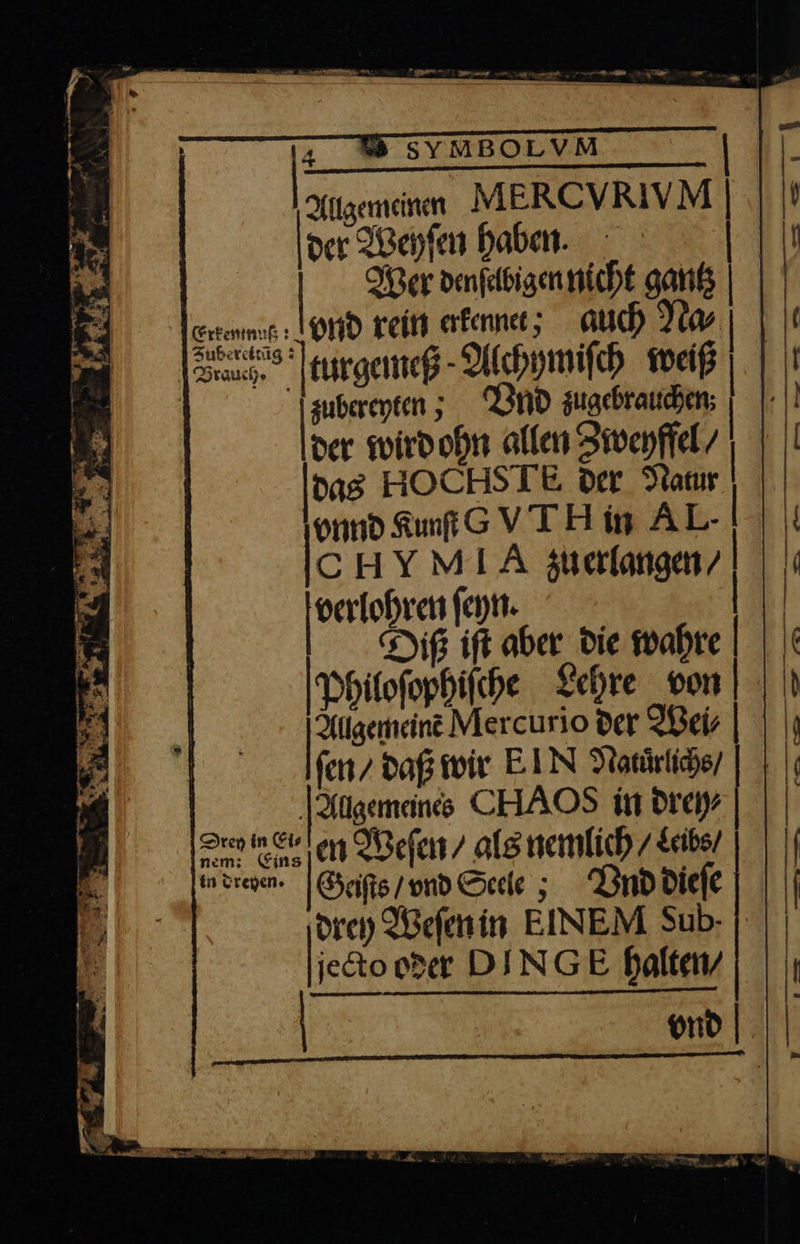 4 SYMBOLVM
Allgemeinen MERCVRIVM
der Weyſen haben.
Wer denſelbigen nicht gantz
Erkentnuß:
vnd rein erkennet; auch Na⸗
Zubereitũg:
Brauch.
turgemeß-Alchymiſch weiß
zubereyten; Vnd zugebrauchen;
der wird ohn allen Zweyffel/
das HOCHSTE der Natur
vnnd Kunſt GVTH in AL-
CHYMIA zuerlangen/
verlohren ſeyn.
Diß iſt aber die wahre
Philoſophiſche Lehre von
Allgemeinẽ Mercurio der Wei⸗
ſen/ daß wir EIN Natuͤrlichs/
Allgemeines CHAOS in drey⸗
Drey in Ei⸗
nem: Eins
in dreyen.
en Weſen/ als nemlich/ Leibs/
Geiſts/ vnd Seele; Vnd dieſe
drey Weſen in EINEM Sub-
jecto oder DINGE halten/
vnd